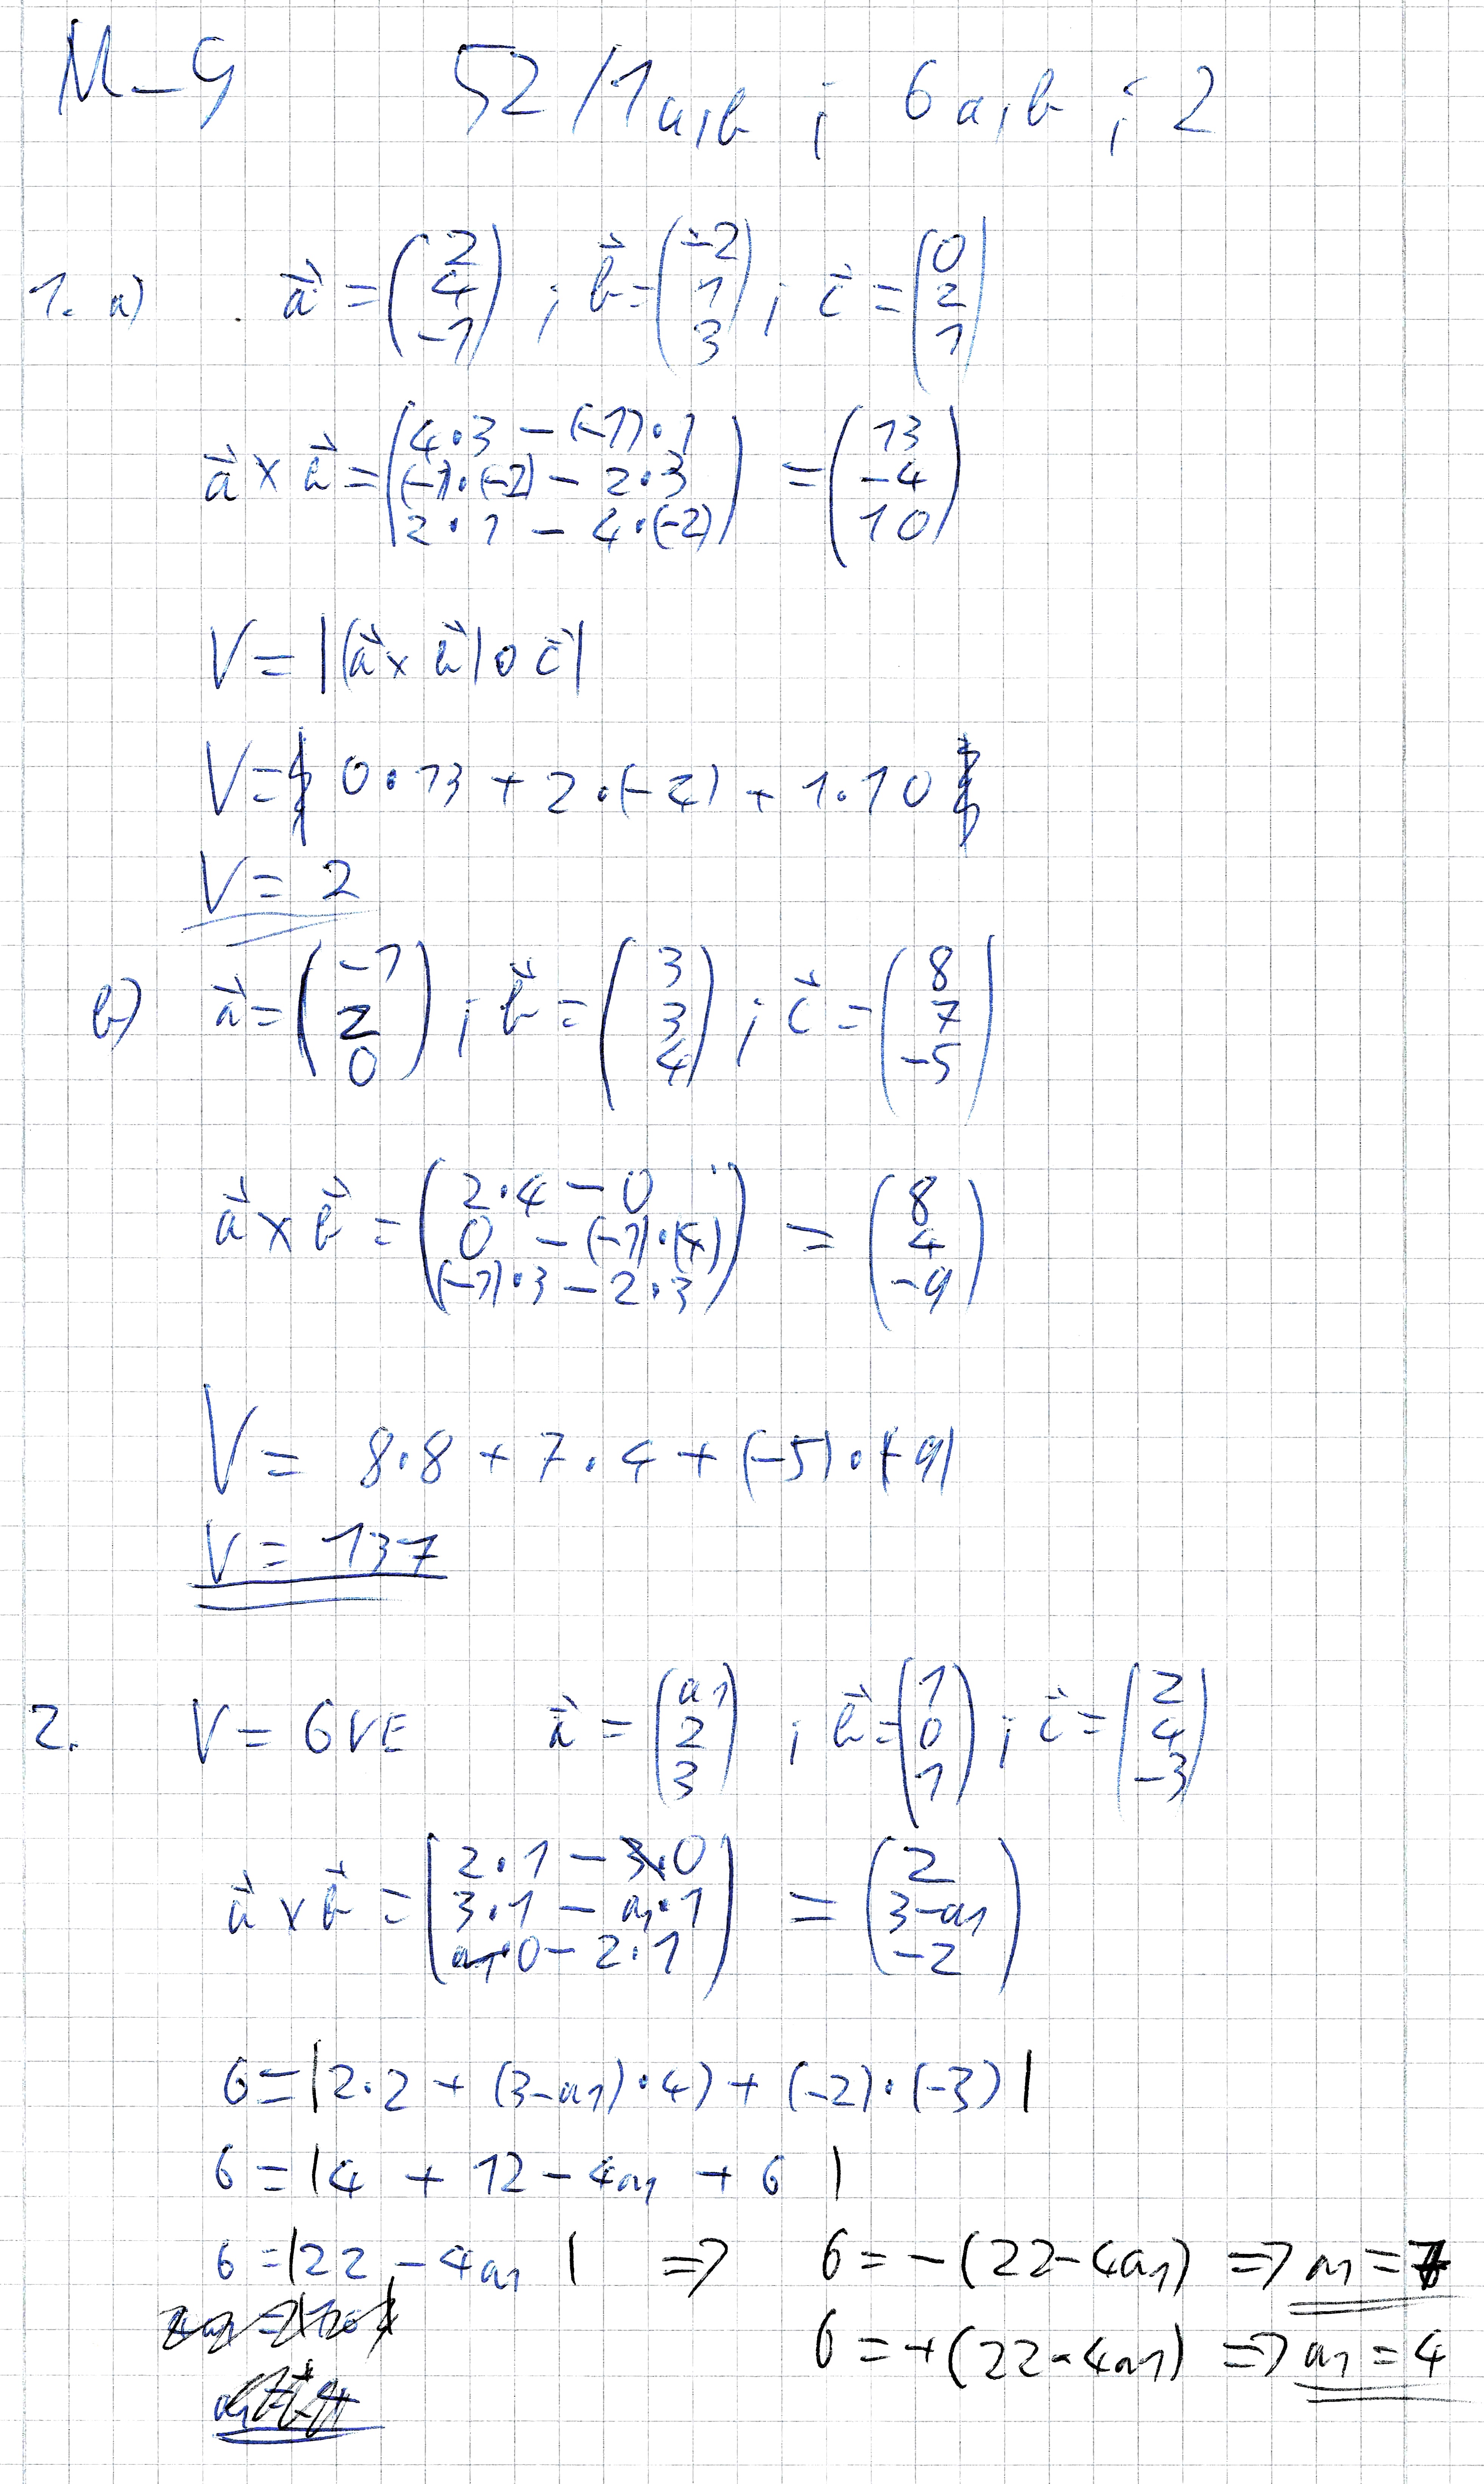 M-G 52/1a,b ; 6a,b ; 2
1. a) a⃗ = (2 4 -1) ; b⃗ = (-2 1 3) ; c⃗ = (0 2 1)
a⃗ × b⃗ = (4·3 - (-1)·1 (-1)·(-2) - 2·3 2·1 - 4·(-2)) = (13 -4 10)
V = |(a⃗ × b⃗) ∘ c⃗|
V = 0·13 + 2·(-4) + 1·10
V = 2
b) a⃗ = (-1 2 0) ; b⃗ = (3 3 4) ; c⃗ = (8 7 -5)
a⃗ × b⃗ = (2·4 - 0 0 - (-1)·(4) (-1)·3 - 2·3) = (8 4 -9)
V = 8·8 + 7·4 + (-5)·(-9)
V = 137
2. V = 6 VE a⃗ = (a1 2 3) ; b⃗ = (1 0 1) ; c⃗ = (2 4 -3)
a⃗ × b⃗ = (2·1 - 3·0 3·1 - a1·1 a1·0 - 2·1) = (2 3-a1 -2)
6 = |2·2 + (3-a1)·4) + (-2)·(-3)|
6 = |4 + 12 - 4a1 + 6|
6 = |22 - 4a1| => 6 = -(22-4a1) => a1 = 7
6 = +(22-4a1) => a1 = 4